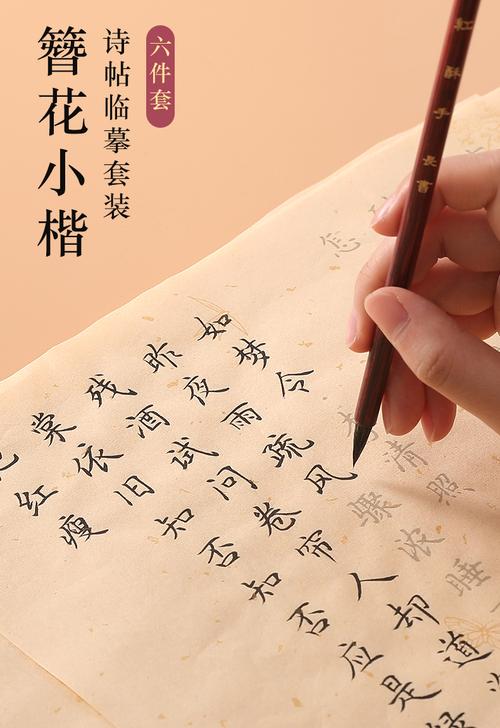 六件套
诗帖临摹套装
簪花小楷
紅酥手 長書
怎
如梦令 李清照
昨夜雨疏风骤浓睡
残酒试问卷帘人却道
棠依旧知否知否应是
红瘦